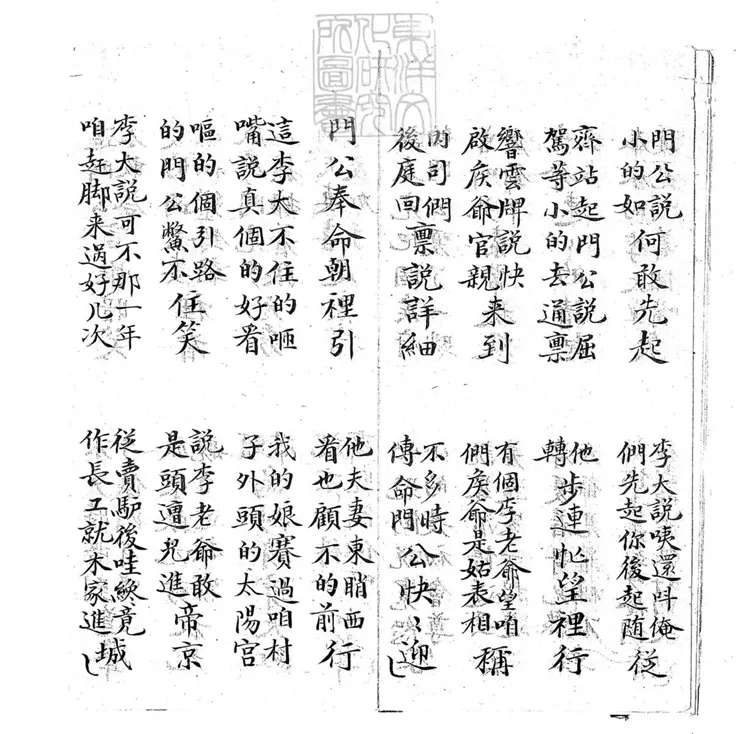 東洋文
化研究
所圖書
門公說小的如何敢先起
李大說咦還呌俺們先起你後起随從
齊站起門公說屈駕等小的去通禀
他轉步連忙望裡行
響雲牌說快啟侯爺官親来到
有個李老爺望咱們侯爺是姑表相稱
内司們後庭回禀說詳細
不多時傳命門公快〻迎
門公奉命朝裡引
他夫妻東瞧西看也顧不的前行
這李大不住的咂嘴說真個的好看
我的娘賽過咱村子外頭的太陽宮
嘔的個引路的門公鱉不住笑
說李老爺敢是頭遭兒進帝京
李大說可不那一年咱赶脚来過好几次
從賣馿後哇竟作長工就木家進城